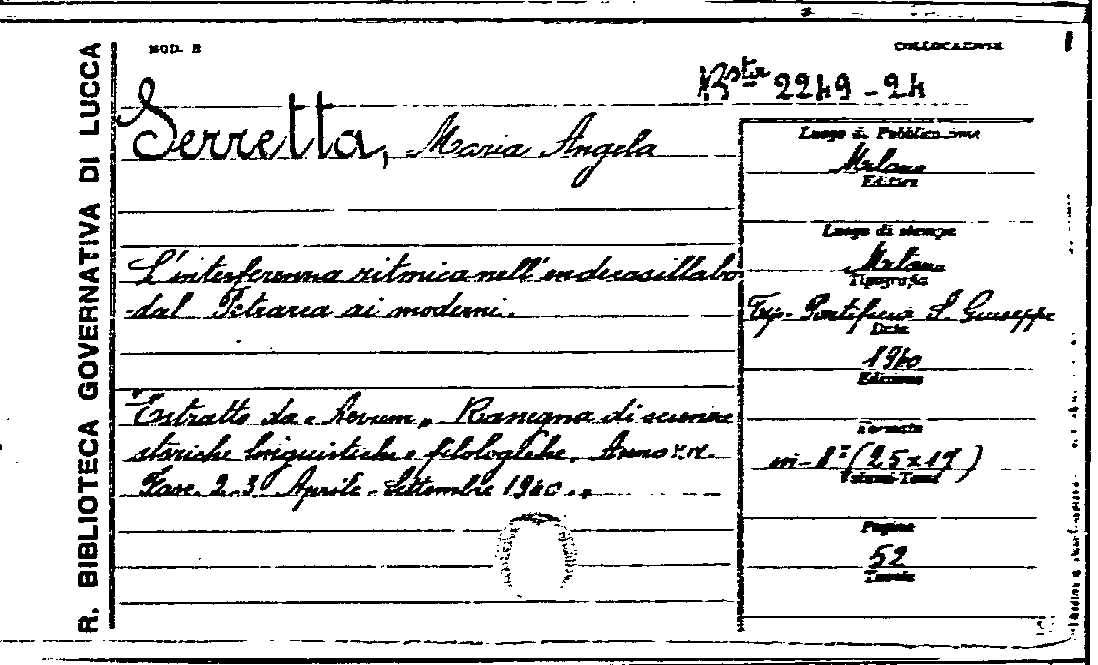 R. BIBLIOTECA GOVERNATIVA DI LUCCA
MOD. B
COLLOCAZIONE
Bsta 2249-24
Serretta, Maria Angela
L'interferenza ritmica nell'endecasillabo
dal Petrarca ai moderni.
"Estratto da "Aevum" Rassegna di scienze
storiche linguistiche e filologiche. Anno
Fasc. 2-3 Aprile-Settembre 1940."
Luogo di Pubblicazione
Milano
Editore
Luogo di stampa
Milano
Tipografia
Tip. Pontificia S. Giuseppe
Data
1940
Edizione
Formato
in-8º (25x17)
Volumi-Tomi
Pagine
52
Tavole